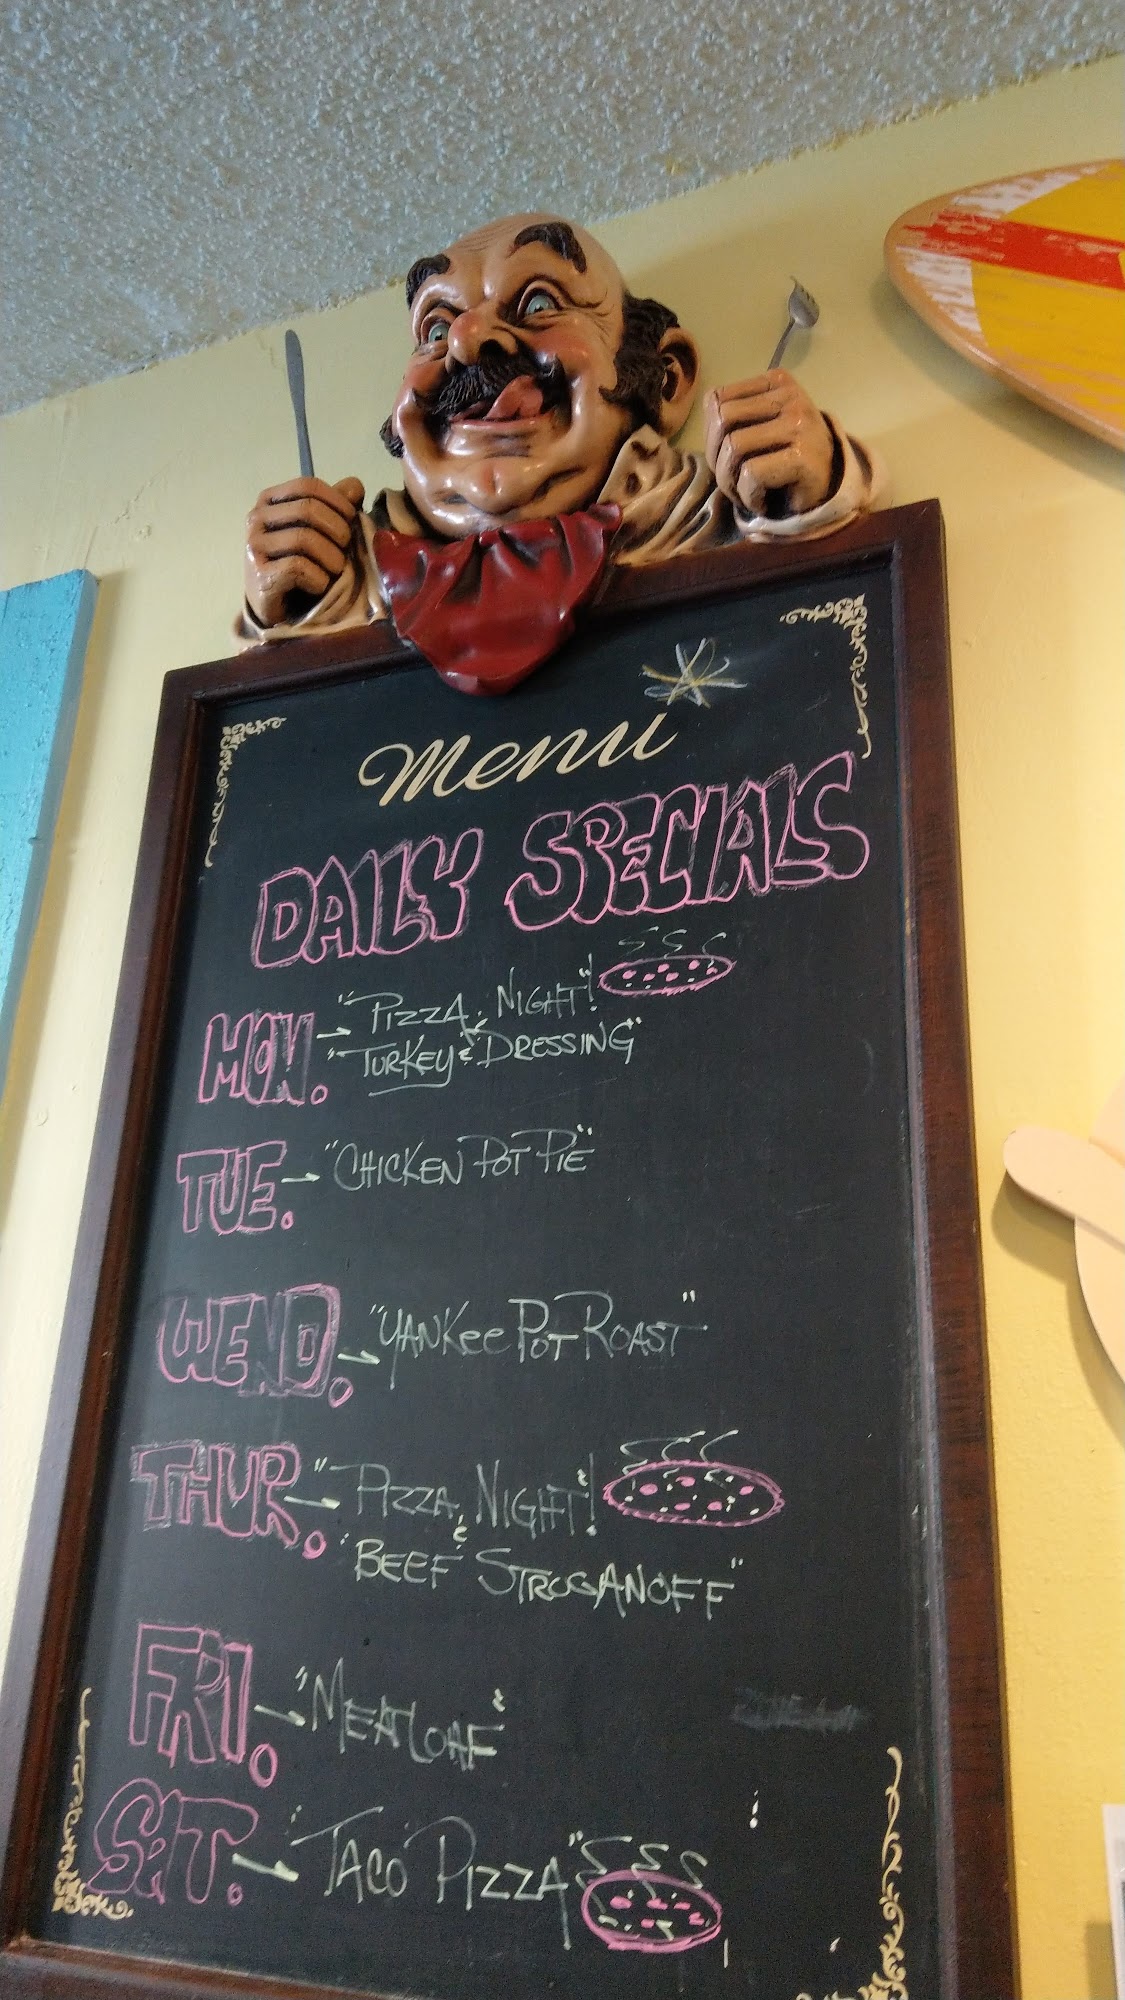 Menu
DAILY SPECIALS
MON. → "PIZZA NIGHT"!
&
"TURKEY & DRESSING"
TUE. → "CHICKEN POT PIE"
WEND. → "YANKEE POT ROAST"
THUR. → "PIZZA NIGHT"!
&
"BEEF STROGANOFF"
FRI. → "MEATLOAF"
SAT. → "TACO PIZZA"